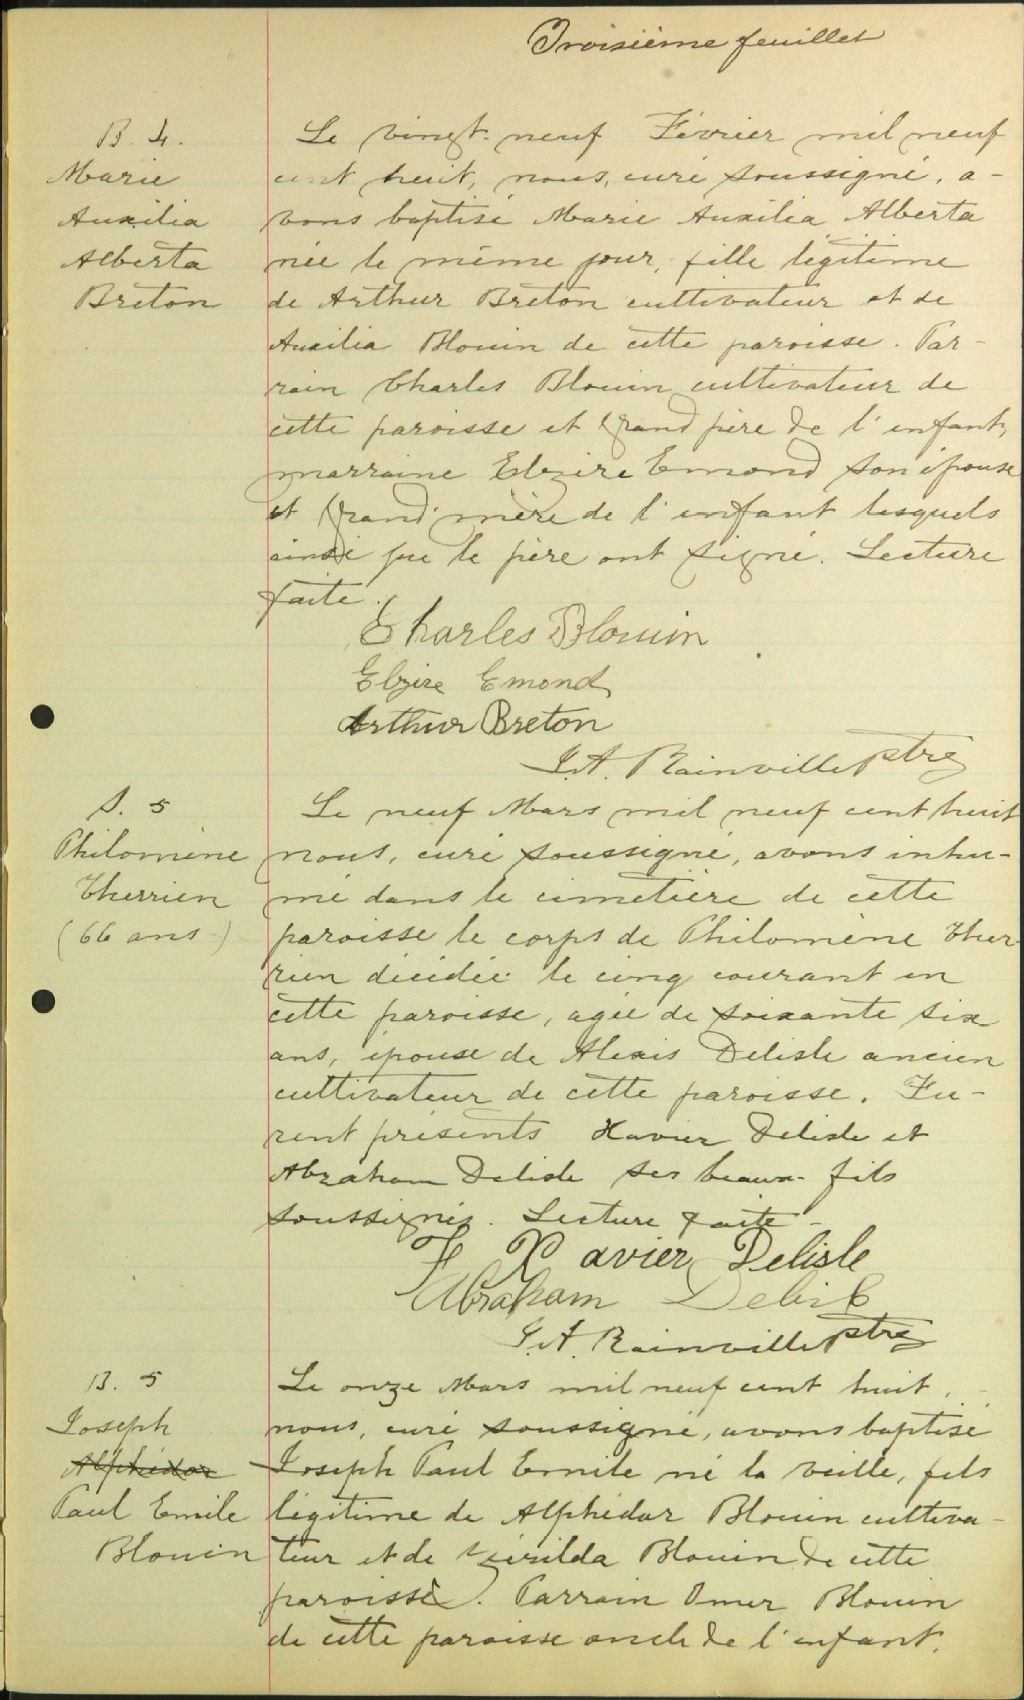 Troisième feuillet
B. 4.
Marie
Auxilia
Alberta
Breton
Le vingt-neuf Février mil neuf
cent huit, nous, curé soussigné, a-
vons baptisé Marie Auxilia Alberta
née le même jour, fille légitime
de Arthur Breton cultivateur et de
Auxilia Blouin de cette paroisse. Par-
rain Charles Blouin cultivateur de
cette paroisse et Grand père de l'enfant,
marraine Elzire Emond son épouse
et Grand'mère de l'enfant lesquels
ainsi que le père ont signé. Lecture
faite.
Charles Blouin
Elzire Emond
Arthur Breton
J. A. Rainville ptre
S. 5
Philomène
Therrien
(66 ans)
Le neuf Mars mil neuf cent huit
nous, curé soussigné, avons inhu-
mé dans le cimetière de cette
paroisse le corps de Philomène Ther-
rien décédée le cinq courant en
cette paroisse, agée de soixante six
ans, épouse de Alexis Delisle ancien
cultivateur de cette paroisse. Fu-
rent présents Xavier Delisle et
Abraham Delisle ses beaux-fils
soussignés. Lecture faite-
F X avier Delisle
Abraham Delisle
J. A. Rainville ptre
B. 5
Joseph
Alphédor
Paul Emile
Blouin
Le onze Mars mil neuf cent huit,
nous, curé soussigné, avons baptisé
Joseph Paul Emile né la veille, fils
légitime de Alphédor Blouin cultiva-
teur et de Blouin de cette
paroisse. Parrain Omer Blouin
de cette paroisse oncle de l'enfant,